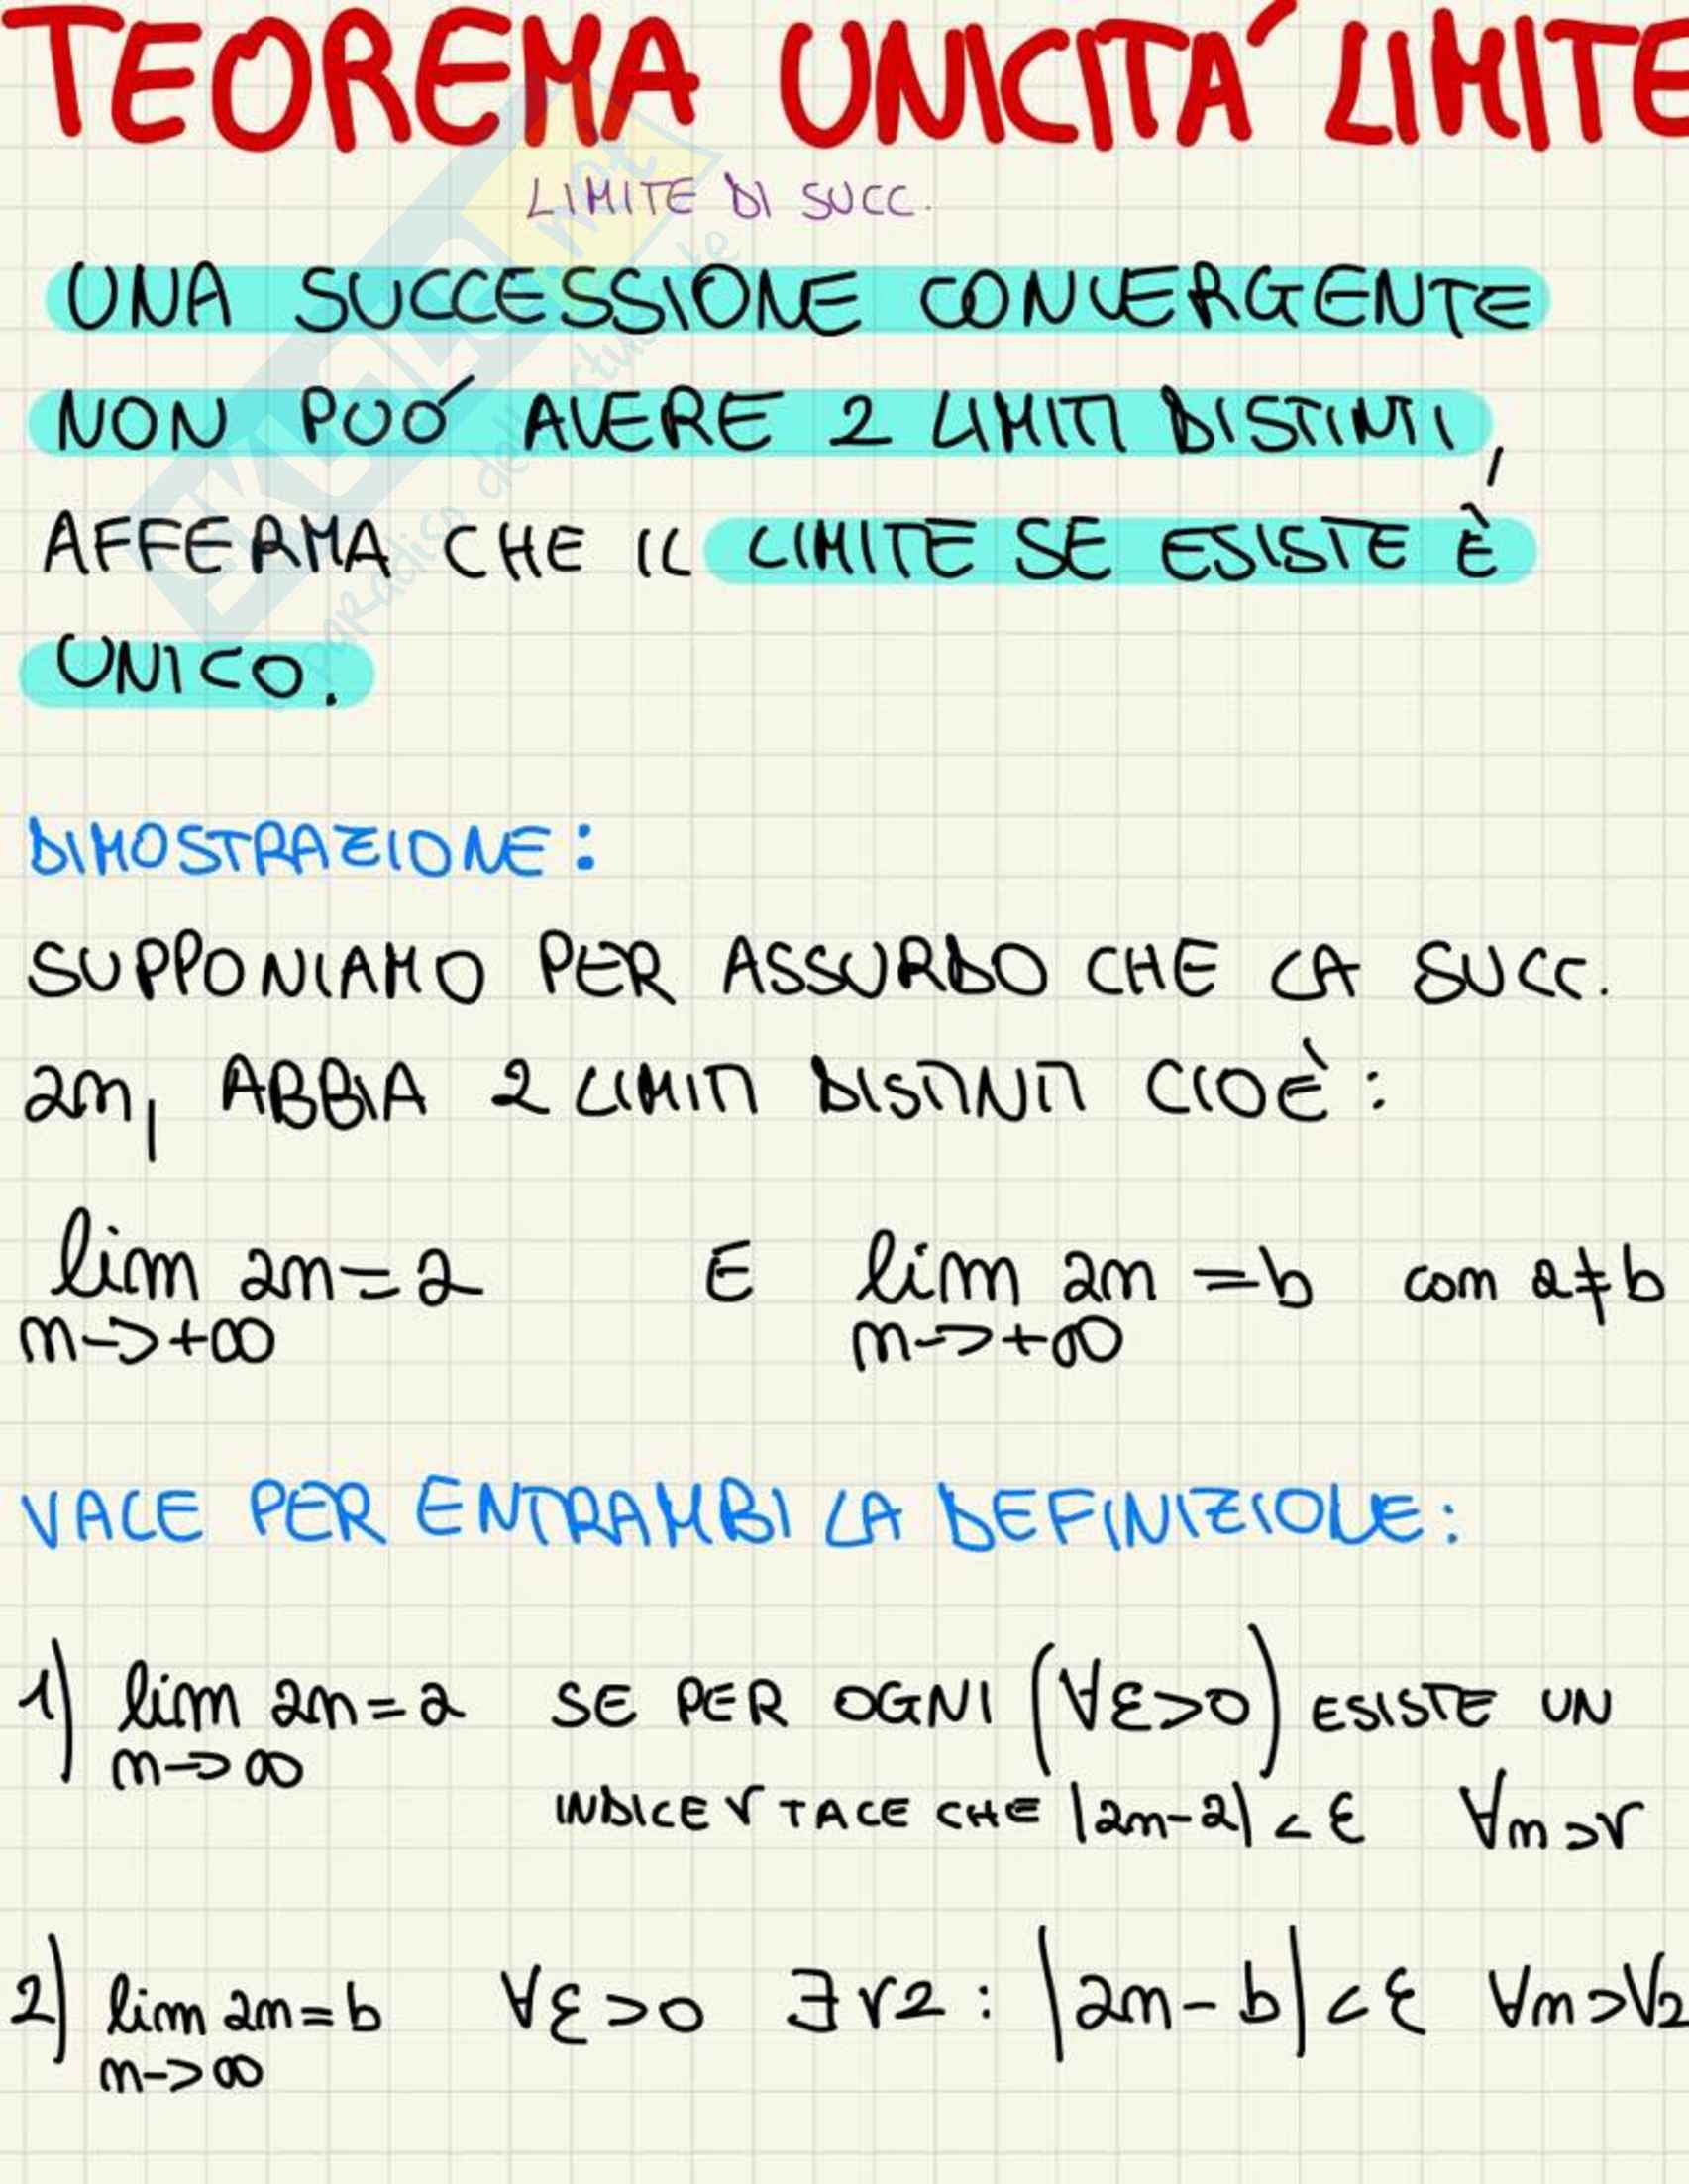 TEOREMA UNICITÁ LIMITE
LIMITE DI SUCC.
UNA SUCCESSIONE CONVERGENTE
NON PUÓ AVERE 2 LIMITI DISTINTI,
AFFERMA CHE IL LIMITE SE ESISTE È
UNICO.
DIMOSTRAZIONE:
SUPPONIAMO PER ASSURDO CHE LA SUCC.
an, ABBIA 2 LIMITI DISTINTI CIOÈ:
lim an=a E lim an =b con a≠b
n->+∞ n->+∞
VALE PER ENTRAMBI LA DEFINIZIONE:
1) lim an=a SE PER OGNI (∀ε>0) ESISTE UN
n->∞ INDICE ν TALE CHE |an-a|<ε ∀n>ν
2) lim an=b ∀ε>0 ∃ν2: |an-b|<ε ∀n>ν2
n->∞
SKUOLA.net
paradiso dello studente